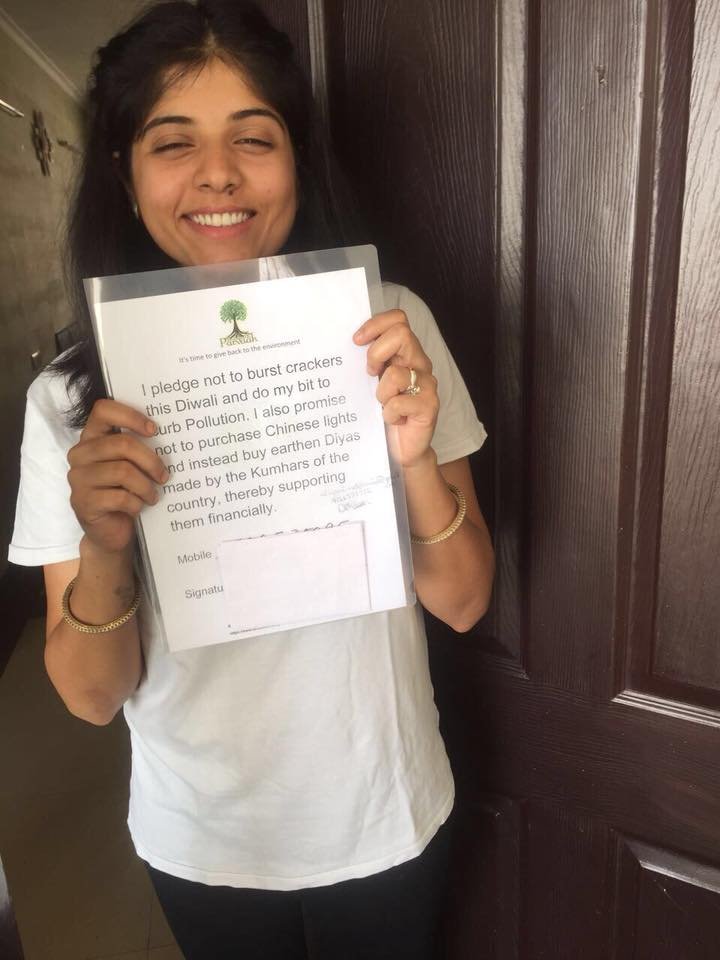 Parvaah
It's time to give back to the environment
I pledge not to burst crackers
this Diwali and do my bit to
curb Pollution. I also promise
not to purchase Chinese lights
and instead buy earthen Diyas
made by the Kumhars of the
country, thereby supporting
them financially.
Mobile
Signatu